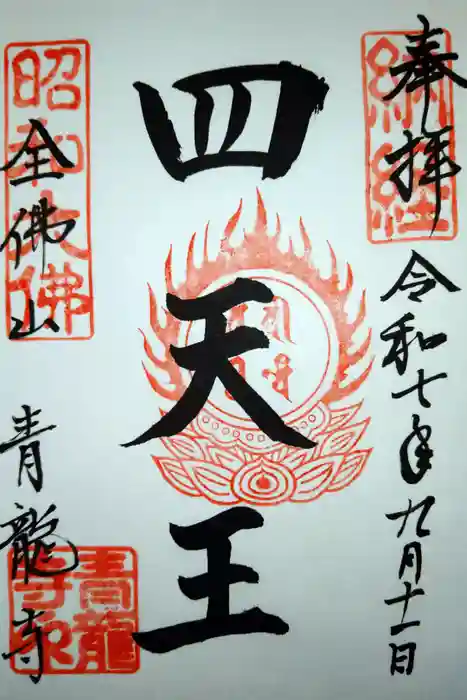 奉拝
納経
令和七年九月十一日
四天王
昭和大佛
全佛山
青龍寺
青龍寺印